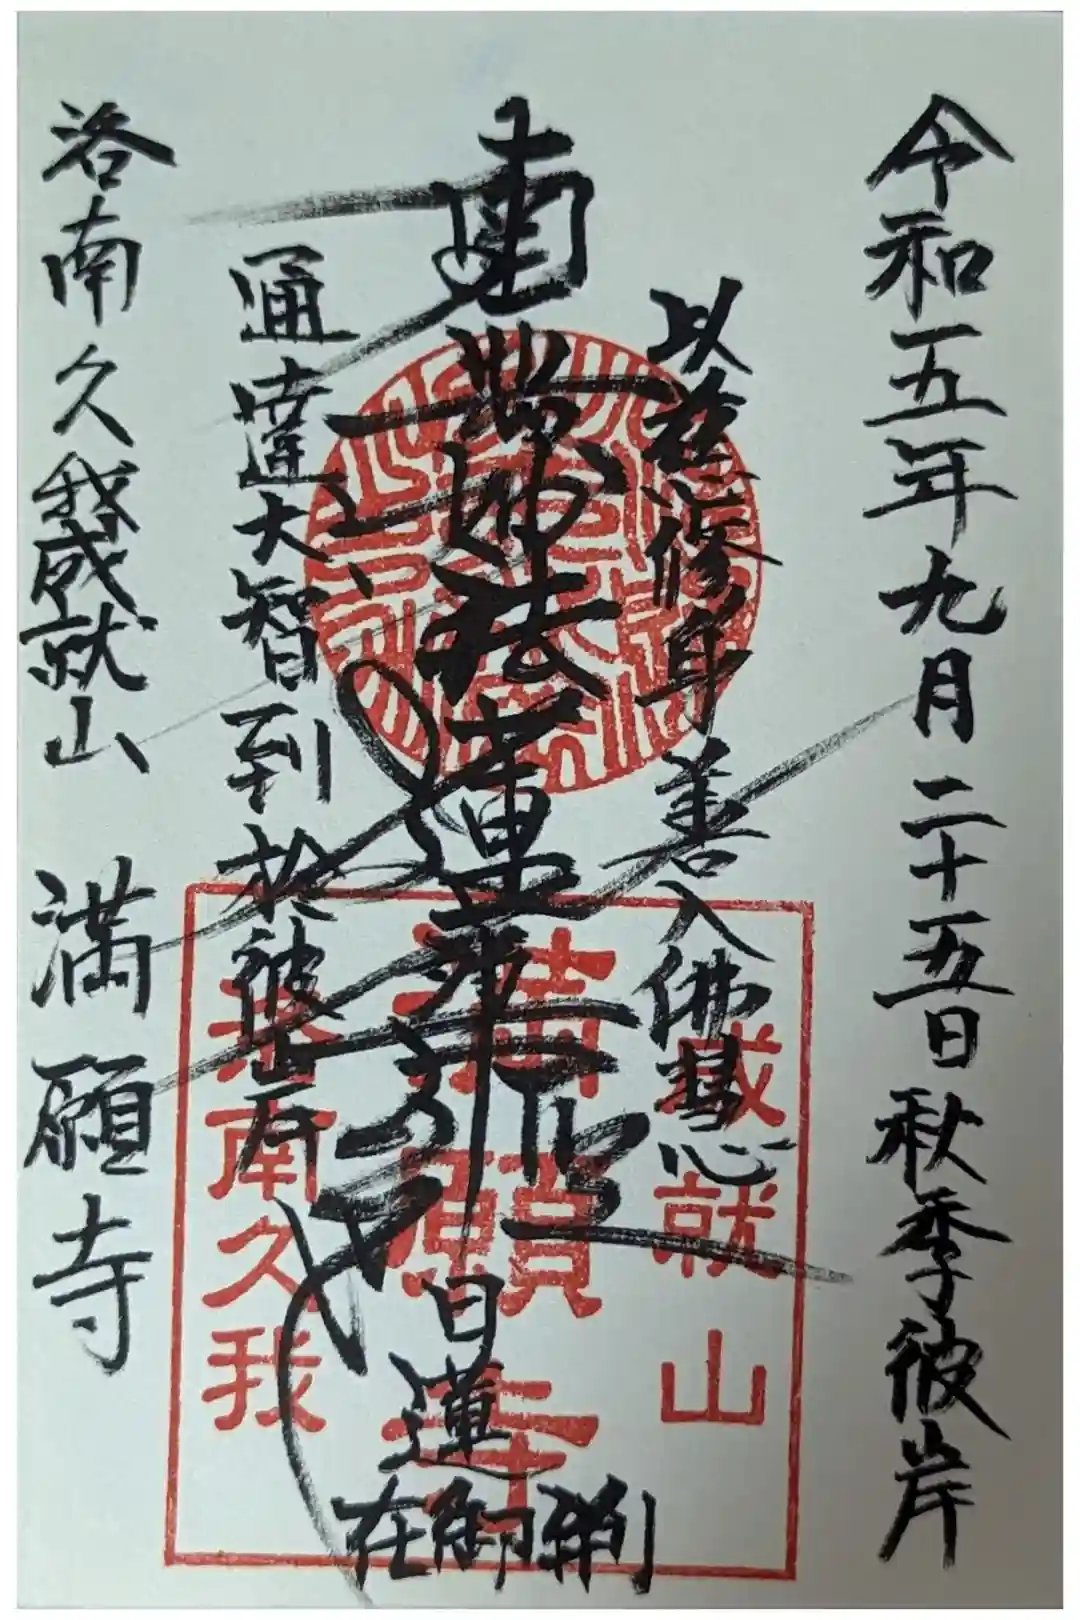 令和五年九月二十五日秋季彼岸
以慈修身 善入佛慧心
南無妙法蓮華経
日蓮
在御判
通達大智到於彼岸
洛南久我成就山 満願寺
成就山
満願寺
洛南久我